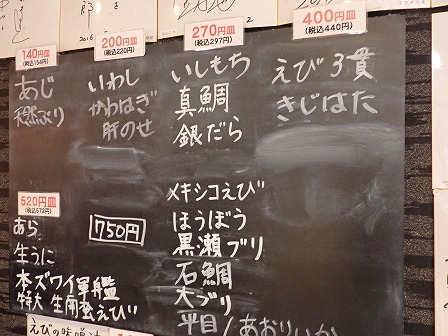 140円皿
(税込154円)
あじ
天然ぶり
200円皿
(税込220円)
いわし
かわはぎ
肝のせ
270円皿
(税込297円)
いしもち
真鯛
銀だら
400円皿
(税込440円)
えび3貫
きじはた
520円皿
(税込572円)
あら
生うに
本ズワイ軍艦
特大 生南蛮えび
750円
メキシコえび
ほうぼう
黒瀬ブリ
石鯛
大ブリ
平目/あおりいか
えびの味噌汁